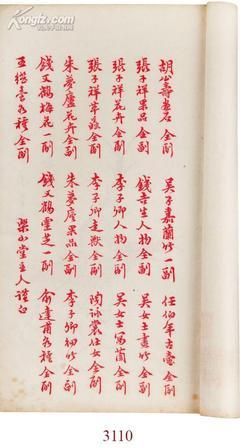 胡公壽画石全副 吴子嘉蘭竹一副 任伯年古香全副
張子祥果品全副 錢吉生人物全副 吴女士畫竹全副
張子祥花卉全副 李子卿人物全副 吴女士寫蘭全副
張子祥草蟲全副 李子卿走獸全副 陶詠裳仕女全副
朱夢廬花卉全副 朱夢廬果品全副 李子卿 全副
錢又鶴梅花一副 錢又鶴靈芝一副 俞達甫 種全副
王 雲 種全副 梁山堂主人謹白
3110